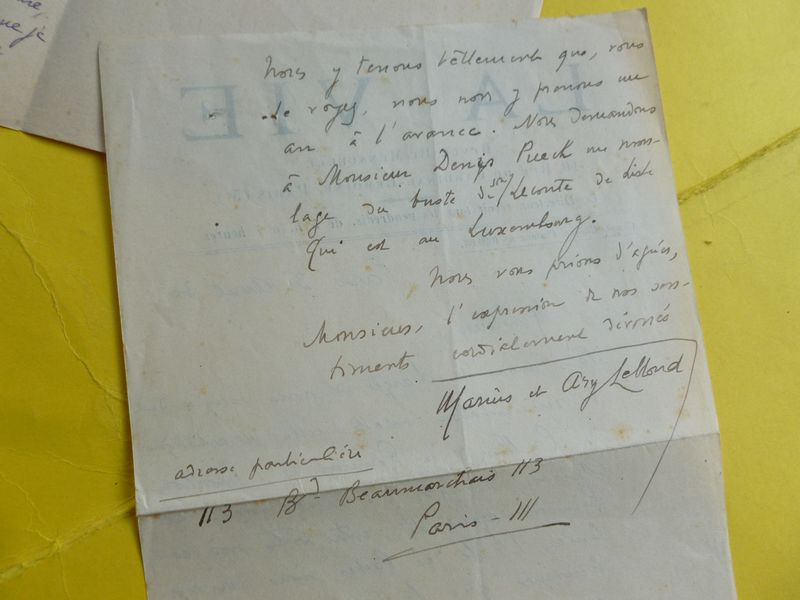 re,
que je
Nous y tenons tellement que, vous
le voyez, nous nous y prenons un
an à l'avance. Nous demandons
à Monsieur Denys Puech un mou-
lage du buste de Leconte de Lisle
qui est au Luxembourg.
Nous vous prions d'agréer,
Monsieur, l'expression de nos sen-
timents cordialement dévoués
Marius et Ary Leblond
adresse particulière
113 Bd Beaumarchais 113
Paris - III
LA VIE